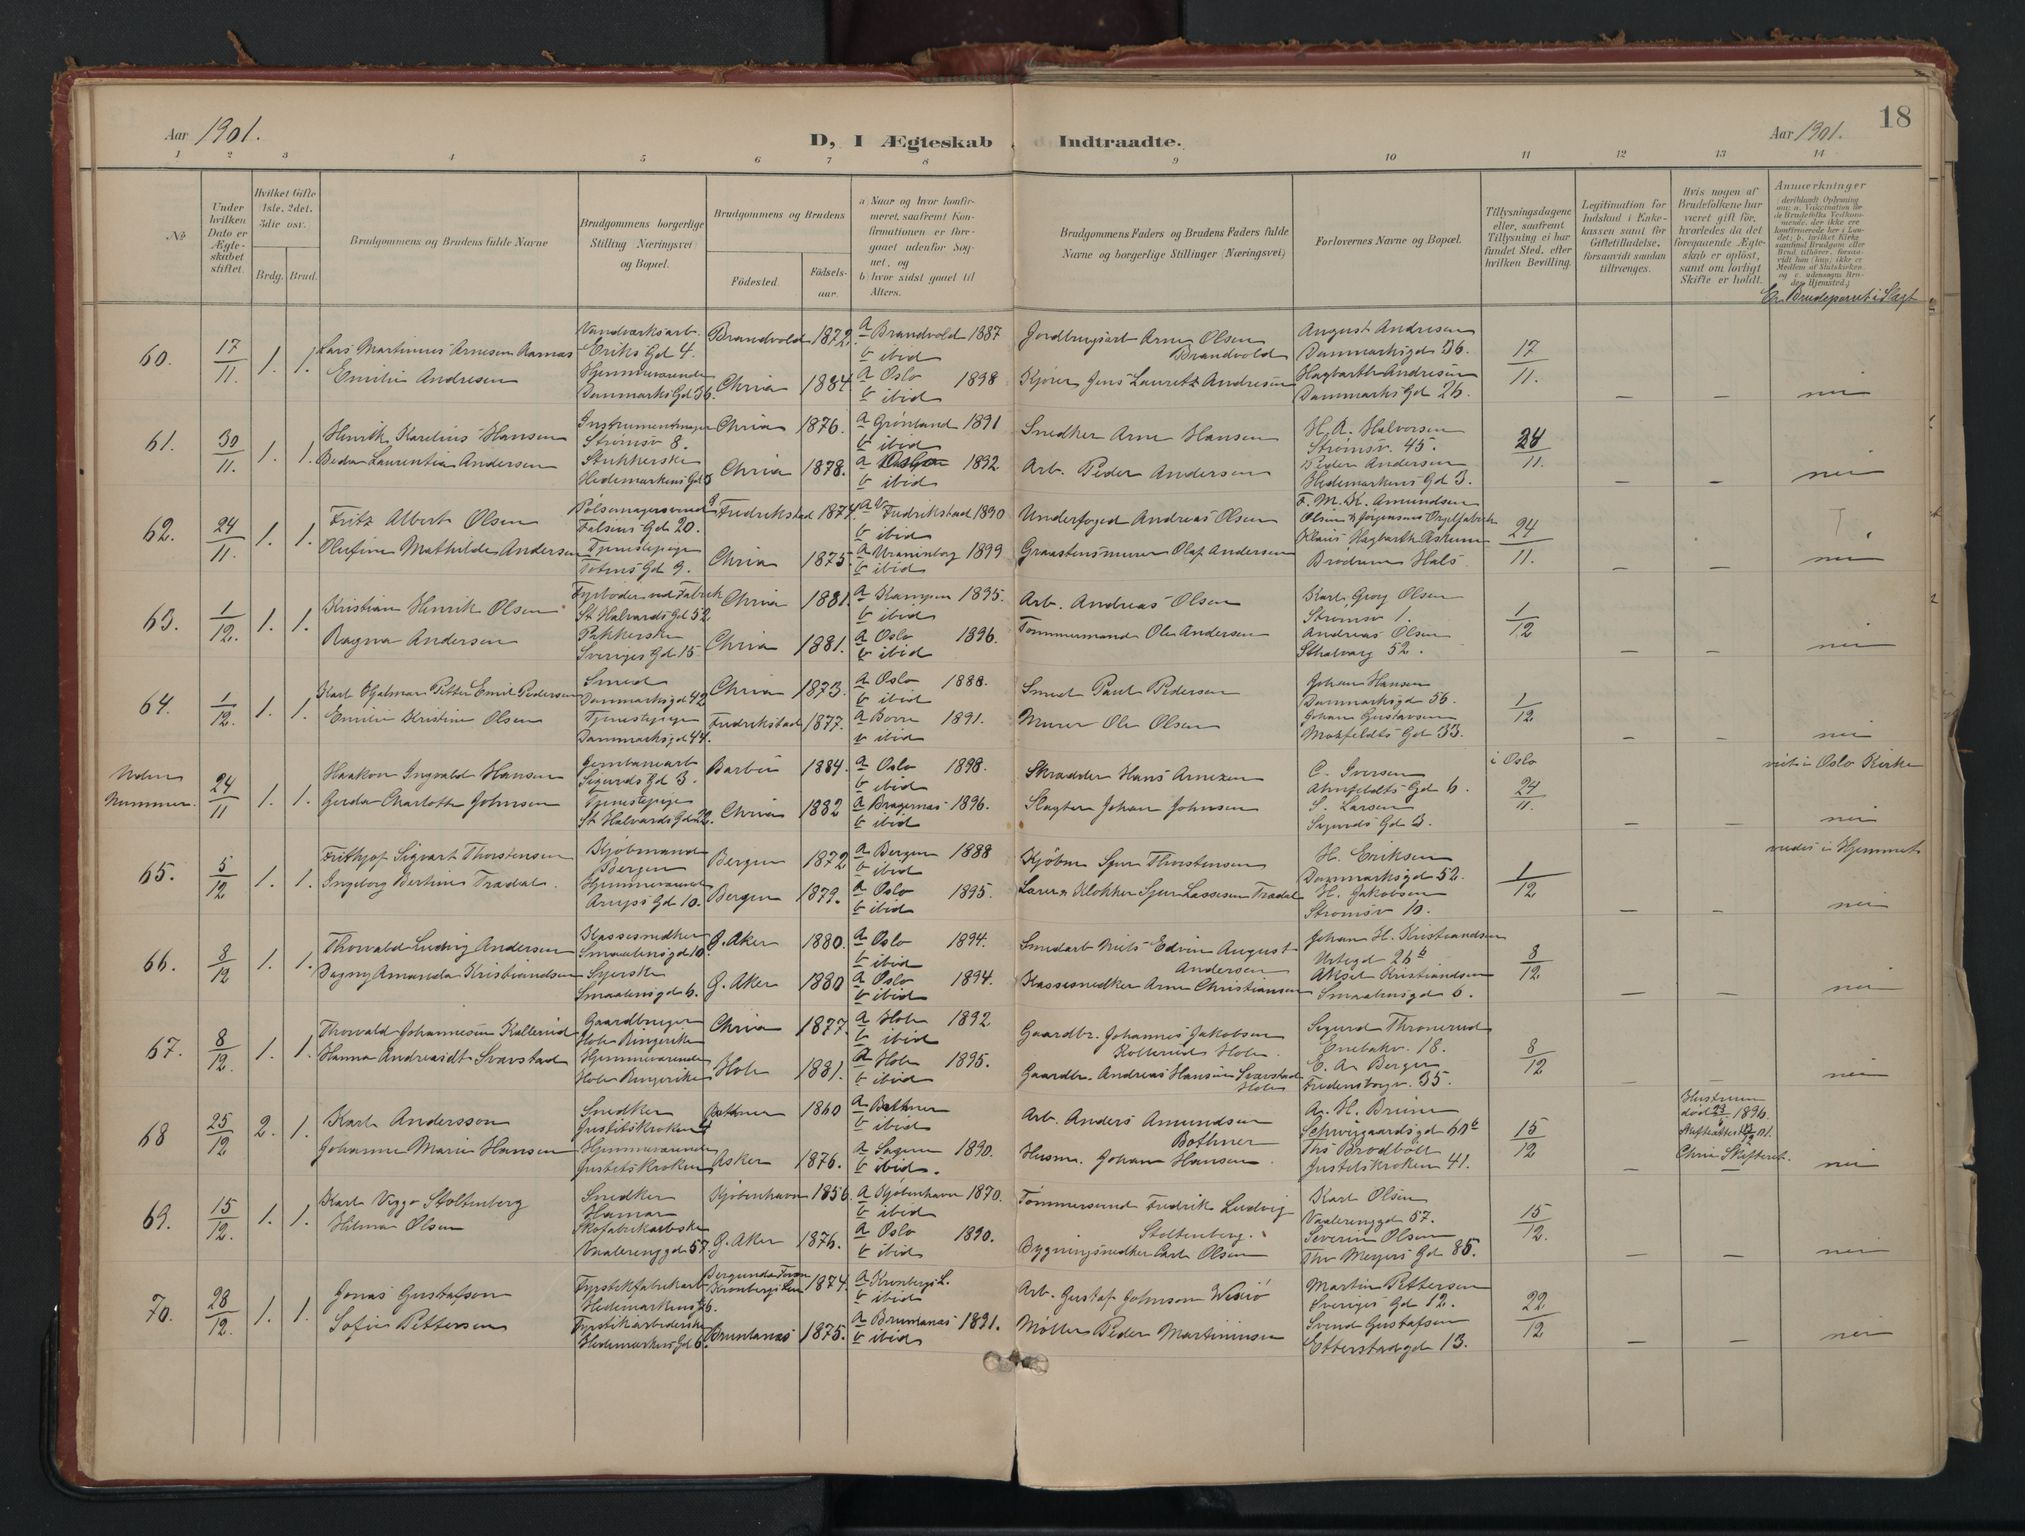 18
Aar 1901.
D, I Ægteskab Indtraadte.
Aar 1901.
1 2 3 4 5 6 7 8 9 10 11 12 13 14
No
Under hvilken Dato er Ægteskabet stiftet.
Hvilket Gifte 1ste, 2det, 3die osv.
Brdg. Brud.
Brudgommens og Brudens fulde Navne
Brudgommens borgerlige Stilling (Næringsvei) og Bopæl.
Brudgommens og Brudens
Fødested.
Fødsels-aar.
a Naar og hvor konfirmeret, saafremt Konfirmationen er foregaaet udenfor Sognet, og
b hvor sidst gaaet til Alters.
Brudgommens Faders og Brudens Faders fulde Navne og borgerlige Stillinger (Næringsvei)
Forlovernes Navne og Bopæl.
Tillysningsdagene eller, saafremt Tillysning ei har fundet Sted, efter hvilken Bevilling.
Legitimation for Indskud i Enkekassen samt for Giftetilladelse, forsaavidt saadan tiltrænges.
Hvis nogen af Brudefolkene har været gift før, hvorledes da det foregaaende Ægteskab er opløst, samt om lovligt Skifte er holdt.
Anmærkninger
Er Brudeparret i Slægt
60. 17/11 1. 1. Lars Martinius Arnesen Aarnæs
Eriks Gd 4.
Brandvold 1872. a Brandvold 1887
b ibid
Jordbrugsarb Arne Olsen
Brandvold
August Andresen
Danmarksgd 36.
17/11.
Emilie Andresen
Hjemmeværende
Danmarks Gd 36.
Chria 1884 a Oslo 1898
b ibid
Kjører Jens Lauretz Andresen
Hagbarth Andresen
Danmarks Gd 26.
— — nei
61. 30/11. 1. 1. Henrik Karelius Hansen
Instrumentmager
Strømsv 8.
Chria 1876. a Grønland 1891
b ibid
Snedker Arne Hansen
H. A. Halvorsen
Strømsv. 45.
24/11.
Beda Laurentia Andersen
Hedemarkens Gd 3
Chria 1878. a 1892
b ibid
Arb. Peder Andersen
Peder Andersen
Hedemarkens Gd 3.
— — nei
62. 24/11. 1. 1. Fritz Albert Olsen
Pølsemagersvend
Falsens Gd 20.
Fredrikstad 1874 a Fredrikstad 1890
b ibid
Underfoged Andreas Olsen
F. M. K. Amundsen
Olsen & Jørgensens Orgelfabrik
24/11.
Olufine Mathilde Andersen
Tjenestepige
Totens Gd 9.
Chria 1875. a Uranienborg 1899
b ibid
Graastensmurer Olaf Andersen
Klaus Hagbarth Askum
— — nei
63. 1/12. 1. 1. Kristian Henrik Olsen
Fyrbøder ved Fabrik
St Halvards Gd 52
Chria 1881. a Kampen 1895.
b ibid
Arb. Andreas Olsen
Karl Georg Olsen
Strømsv 1.
1/12
Ragna Andersen
Pakkerske
Sveriges Gd 15
Chria 1881. a Oslo 1896.
b ibid
Tømmermand Ole Andersen
Andreas Olsen
St Halvarg 52.
— — nei
64. 1/12. 1. 1. Karl Hjalmar Petter Emil Pedersen
Smed
Danmarksgd 42
Chria 1873. a Oslo 1888.
b ibid
Smed Paul Pedersen
Johan Hansen
Danmarksgd 56.
1/12
Emilie Kristine Olsen
Tjenestepige
Danmarksgd 44.
Fredrikstad 1877. a Borre 1891.
b ibid
Murer Ole Olsen
Johan Gustavsen
Motzfeldts Gd 33.
— — nei
Uden Nummer. 24/11 1. 1. Haakon Ingvald Hansen
Jernbanearb
Sigurds Gd 3.
1884. a Oslo 1898.
b ibid
Skrædder Hans Arnezen
C. Iversen
Ahnfeldts Gd 6.
i Oslo
24/11.
viet i Oslo Kirke
Gerda Charlotte Johnsen
Tjenestepige
St Halvards Gd 22.
Chria 1882 a Bragernæs 1896.
b ibid
Slagter Johan Johnsen
S. Larsen
Sigurds Gd 3.
— — nei
65. 5/12 1. 1. Frithjof Sigvart Thorstensen
Kjøbmand
Bergen
Bergen 1872 a Bergen 1888
b ibid
Kjøbm Sjur Thorstensen
H. Eriksen
Danmarksgd 52.
1/12
viedes i Hjemmet
Ingeborg Bertine Trædal.
Hjemmeværende
Arups Gd 10.
Bergen 1879. a Oslo 1895.
b ibid
Lærer & Klokker Sjur Lassesen Trædal
H. Jakobsen
Strømsv 10.
— — nei
66. 8/12 1. 1. Thorvald Ludvig Andersen
Kassesnedker
Smaalensgd 10.
Ø. Aker 1880. a Oslo 1894.
b ibid
Smedarb Niels Edvin August
Andersen
Johan H. Kristiansen
Urtegd 26b
8/12
Dagny Amanda Kristiandsen
Syerske
Smaalensgd 6.
Ø. Aker 1880 a Oslo 1894.
b ibid
Kassesnedker Arne Christiansen
Aksel Kristiandsen
Smaalensgd 6.
— — nei
67. 8/12. 1. 1. Thorvald Johannesen Kollerud
Gaardbruger
Hole Ringerike
Chria 1877. a Hole 1892
b ibid
Gaardbr. Johannes Jakobsen
Kollerud Hole.
Sigurd Thronerud
Enebakv. 18.
8/12
Hanna Andreasdt Svarstad
Hjemmeværende
Hole Ringerike
Hole 1881. a Hole 1895.
b ibid
Gaardbr. Andreas Hansen Svarstad
Hole
E. A. Berger
Fredensborgv. 35.
— — nei
68 25/12 2. 1. Karl Andersson
Snedker
Justitskroken
1860 a
b ibid
Arb. Anders Amundsen
Bothner
A. H. Bruun
Schweigaardsgd 60b
15/12
Hustruen
død 1896.
Johanne Marie Hansen
Hjemmeværende
Justitskroken
Asker 1876. a Sagene 1890.
b ibid.
Husm. Johan Hansen.
Ths Brodbøll
Justitskroken 41.
— Chria Skifteret. nei
69. 15/12. 1. 1. Karl Viggo Stoltenberg
Snedker
Hamar
Kjøbenhavn 1856. a Kjøbenhavn 1870.
b ibid
Tømmersvend Fredrik Ludvig
Stoltenberg.
Karl Olsen
Vaalerenggd 57.
15/12.
Hilma Olsen
Skofabrikarbske
Vaalerenggd 57.
Ø. Aker 1876. a Oslo 1890.
b ibid
Bygningssnedker Carl Olsen
Severin Olsen
Thv Meyers Gd 85.
— — nei
70. 28/12. 1. 1. Jonas Gustafson
Fyrstikfabrikarb
Hedemarkens 6.
Kronbergs Len 1874. a Kronbergs L.
b ibid
Arb. Gustaf Johnson Wexiö
Martin Pettersen
Sveriges Gd 12.
22/12
Sofie Pettersen
Fyrstikarbeiderske
Hedemarkens Gd 6.
Brunlanæs 1875. a Brunlanæs 1891.
b ibid
Møller Peder Martininsen
Svend Gustafsen
Etterstadgd 13.
— — nei